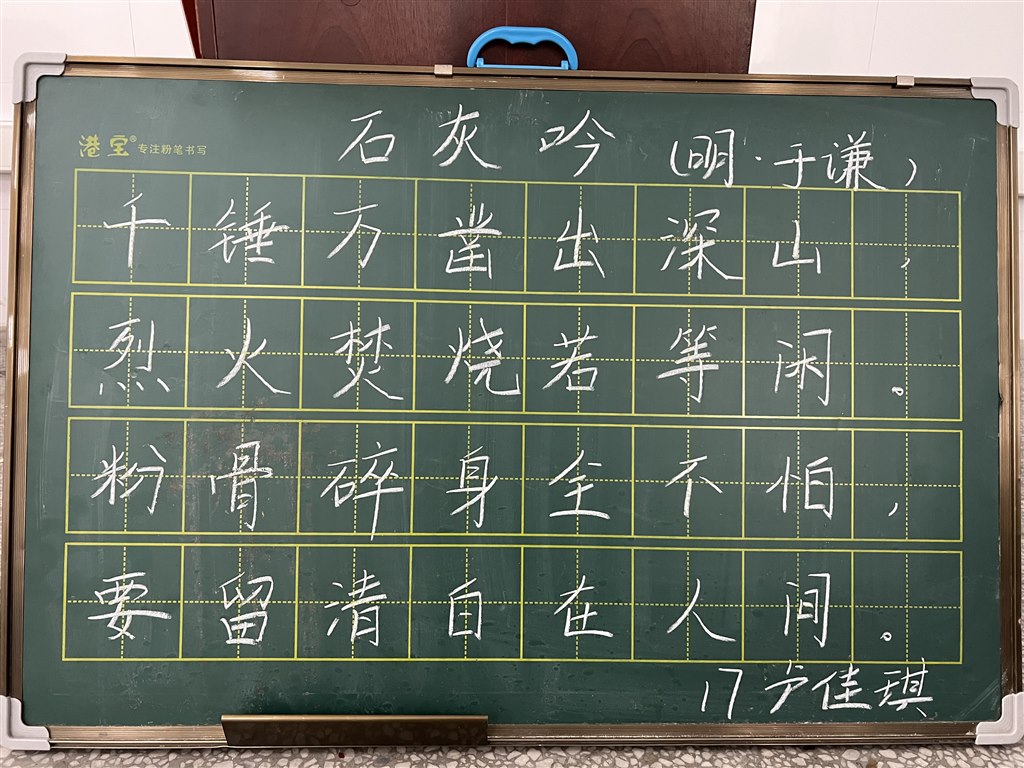 港宝® 专注粉笔书写
石灰吟 (明·于谦)
千锤万凿出深山,
烈火焚烧若等闲。
粉骨碎身全不怕,
要留清白在人间。
17 方佳琪